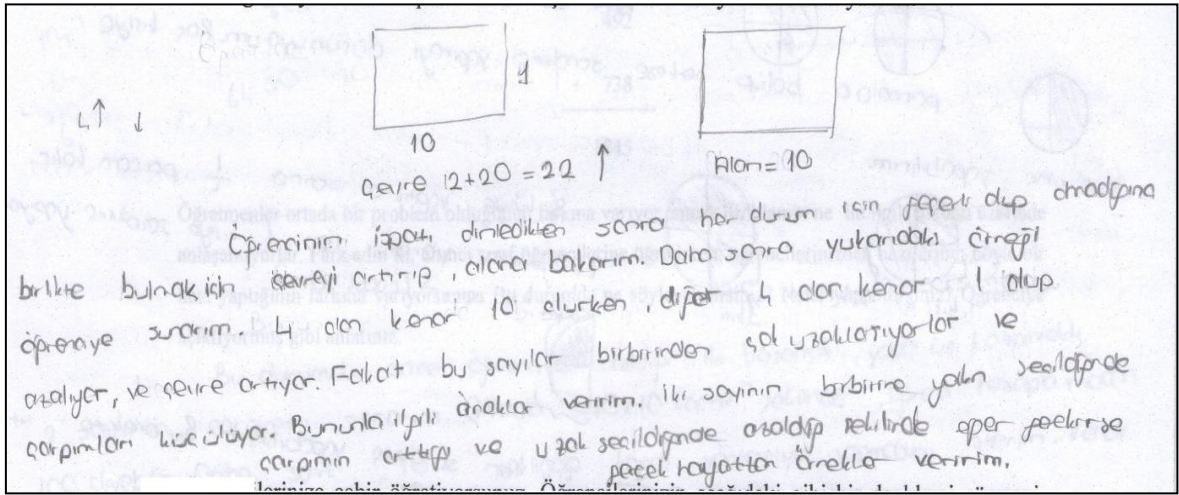 10
Çevre 12+20=22
Alan=90
Öğrencinin ispatı dinledikten sonra her durum için geçerli olup olmadığına
birlikte bulmak için çevreyi artırıp, alana bakarım. Daha sonra yukarıdaki örneği
öğrenciye sunarım. 4 olan kenar 10 olurken, diğer 4 olan kenar 1 olup
azalıyor, ve çevre artıyor. Fakat bu sayılar birbirinden çok uzaklaşıyorlar ve
çarpımları küçülüyor. Bununla ilgili örnekler veririm, iki sayının birbirine yakın seçildiğinde
çarpımın arttığı ve uzak seçildiğinde azaldığı şekilinde eğer gerekirse
gerçek hayattan örnekler veririm.